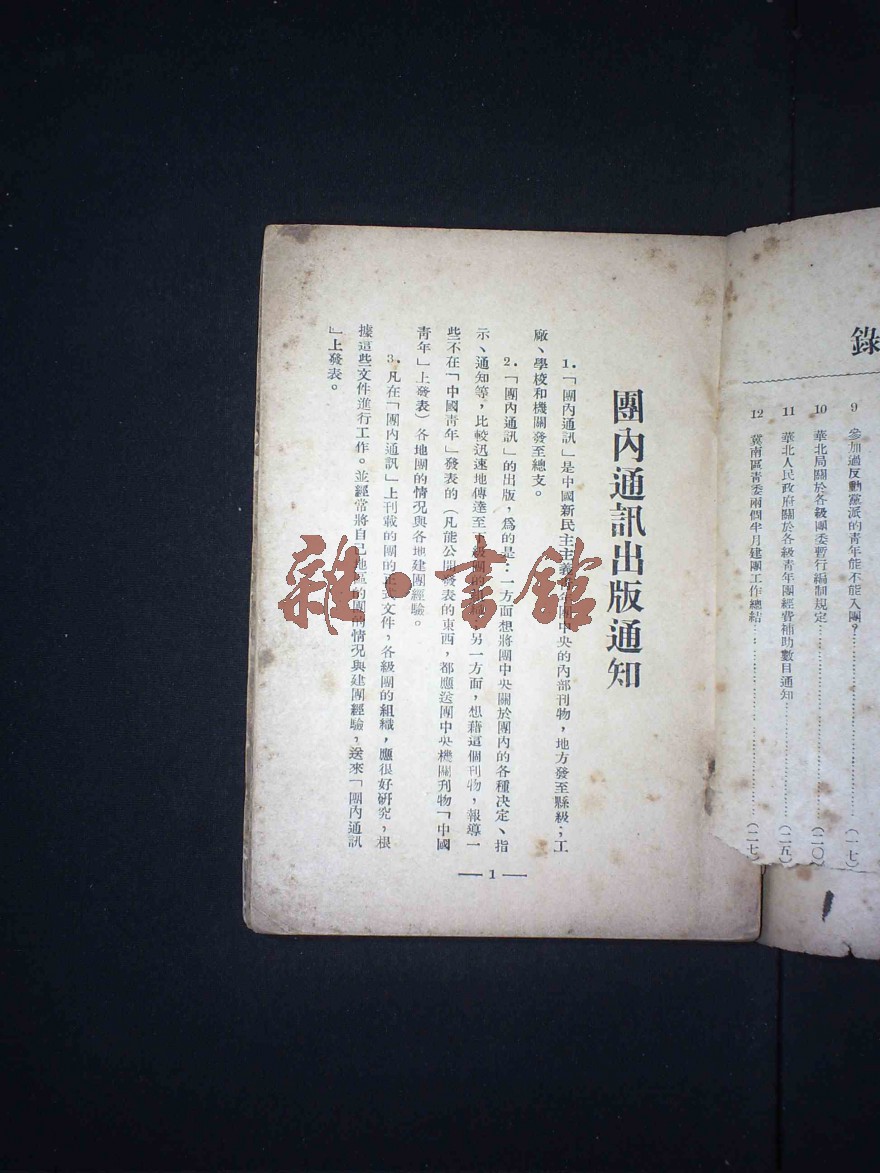 錄
9 參加過反動黨派的青年能不能入團？……(一七)
10 華北局關於各級團委暫行編制規定……(二〇)
11 華北人民政府關於各級青年團經費補助數目通知……(二五)
12 冀南區青委兩個半月建團工作總結……(二七)
團內通訊出版通知
1.「團內通訊」是中國新民主主義青年團中央的內部刊物，地方發至縣級；工
廠、學校和機關發至總支。
2.「團內通訊」的出版，爲的是：一方面想將團中央關於團內的各種决定、指
示、通知等，比較迅速地傳達至下級團的組織；另一方面，想藉這個刊物，報導一
些不在「中國青年」發表的（凡能公開發表的東西，都應送團中央機關刊物「中國
青年」上發表）各地團的情况與各地建團經驗。
3.凡在「團內通訊」上刊載的團的正式文件，各級團的組織，應很好研究，根
據這些文件進行工作。並經常將自己地區的團的情况與建團經驗，送來「團內通訊
」上發表。
— 1 —
雜·書館